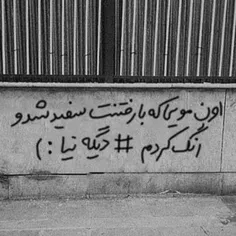 اون مویی که با رفتنت سفید شدو
رنگ کردم # دیگه نیا :)